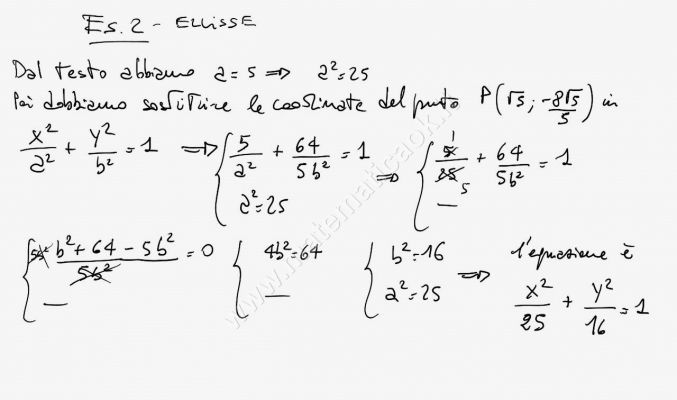 Es. 2 - ELLISSE
Dal testo abbiamo a=5 ⇒ a²=25
Poi dobbiamo sostituire le coordinate del punto P(√5; -8√5/5) in
x²/a² + y²/b² = 1 ⇒ { 5/a² + 64/5b² = 1 ; a²=25 ⇒ { 5/25 1/5 + 64/5b² = 1 ; —
{ 5b² b²+64-5b²/5b² = 0 ; — { 4b²=64 ; — { b²=16 ; a²=25 ⇒ l'equazione è
x²/25 + y²/16 = 1
www.matematicaok.it